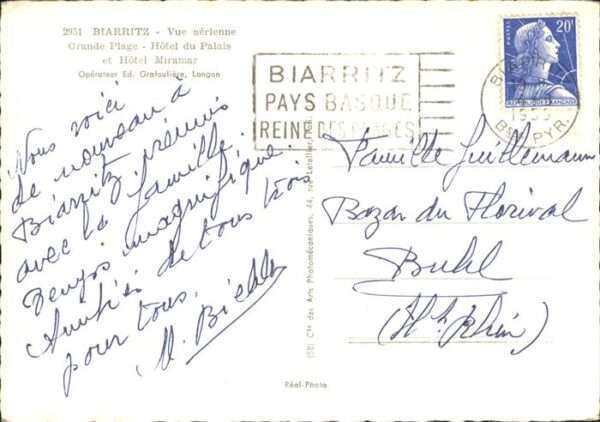 2951 BIARRITZ - Vue aérienne
Grande Plage - Hôtel du Palais
et Hôtel Miramar
Opérateur Ed. Grafoulière, Langon
Nous voici
de nouveau à
Biarritz réunis
avec la famille.
Temps magnifique.
Amitiés de tous trois
pour tous.
BIARRITZ
PAYS BASQUE
REINE DES PLAGES
20F
REPUBLIQUE FRANÇAISE
Bses PYR.
Famille Guillemann
Bazar du Florival
Buhl
(Ht. Rhin)
(58) Cie des Arts Photomécaniques, 44, rue Letellier, Paris
Réel-Photo